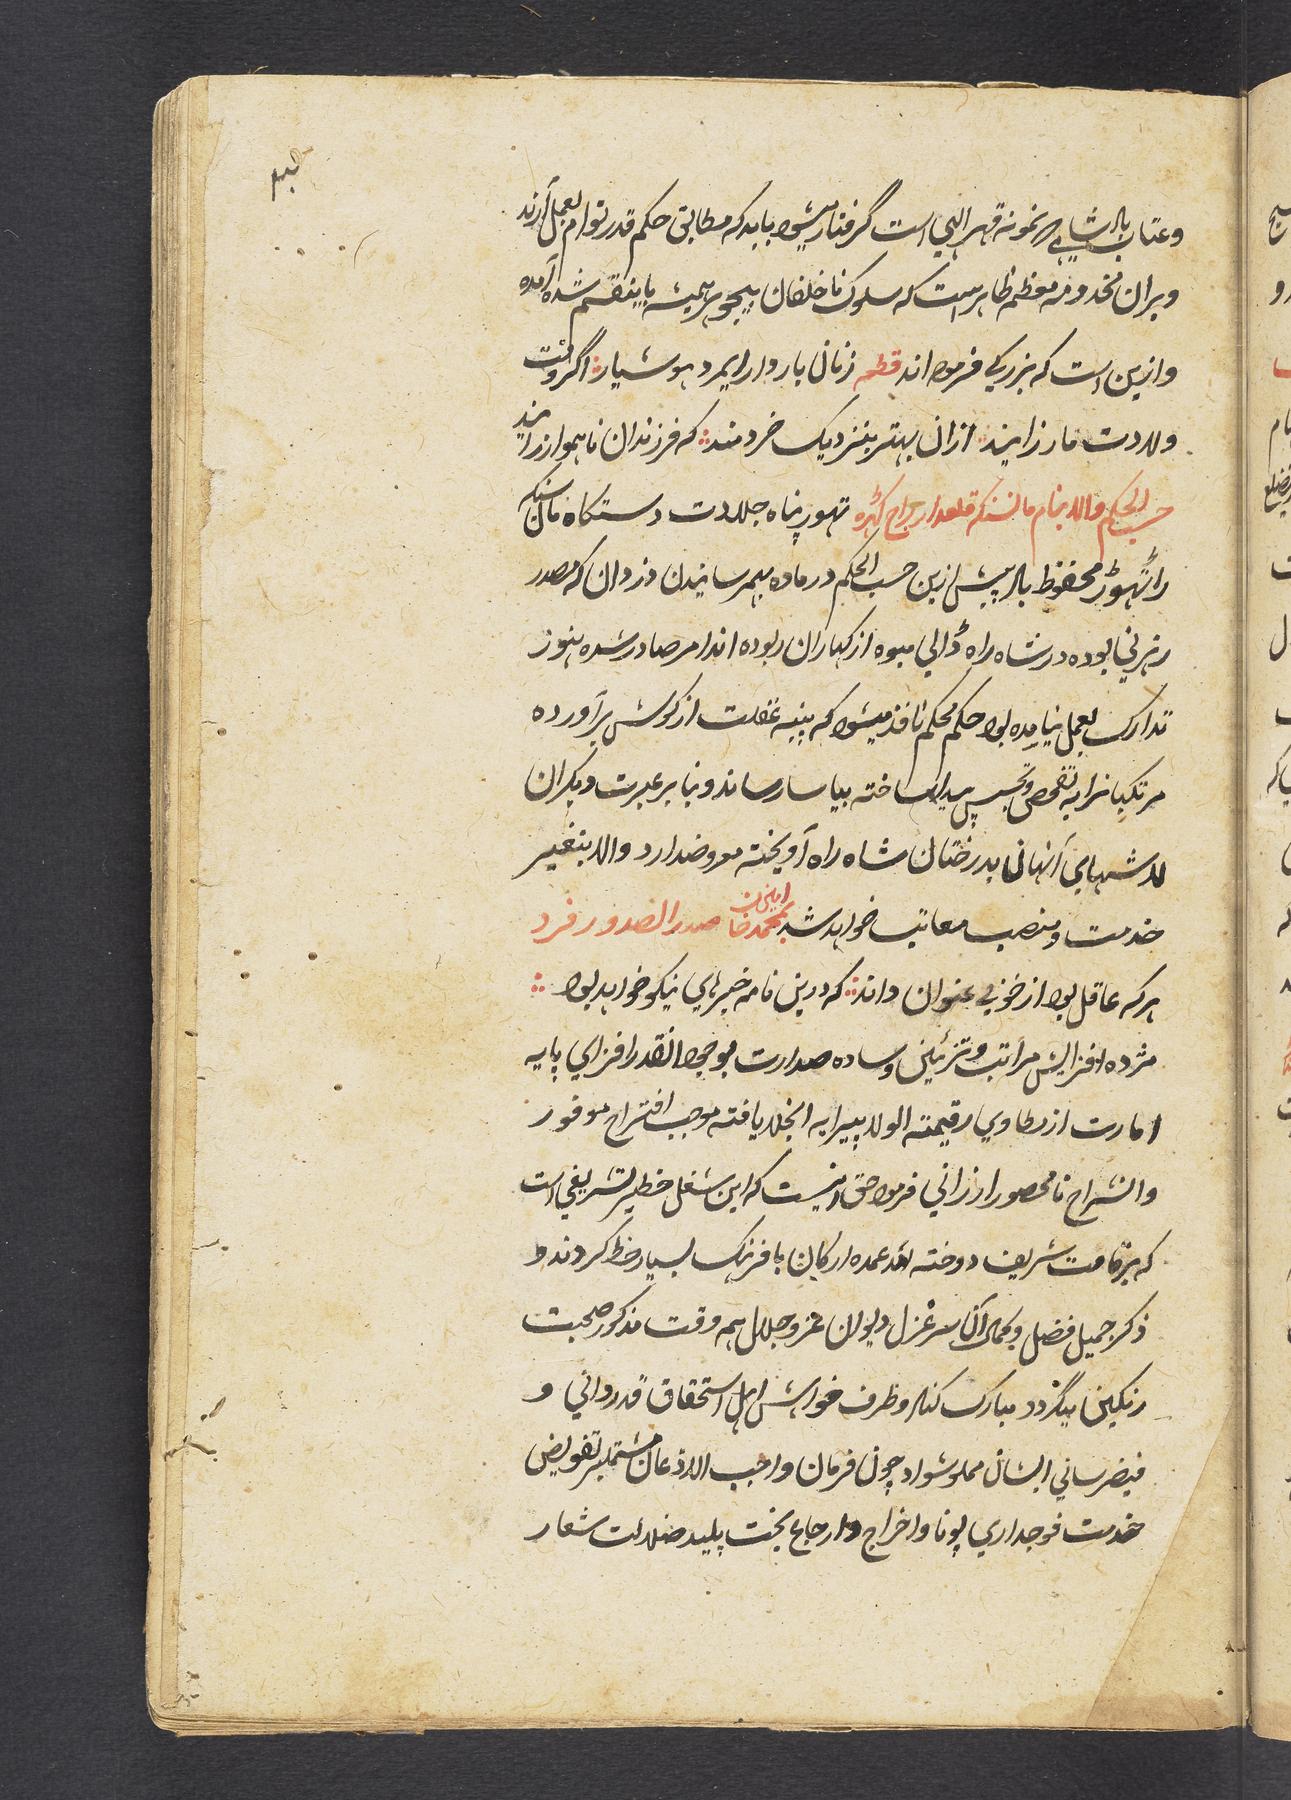 و عتاب بادشاهی که نمونه قهر الهی است گرفتار میشود باید که مطابق حکم قدر توام بعمل آرند
و بران مخدومه معظم ظاهر است که سلوک ناخلفان بیجوهر همیشه باینقسم شده آمده
و ازین است که بزرکی فرموده اند قطعه زنان باردار ایمرد هوشیار اگر وقت
ولادت مار زایند ازان بهتر بنزدیک خردمند که فرزندان ناهموار زایند
حسب الحکم والا بنام مانسنکه قلعدار تهور پناه جلادت دستکاه مانسنکه
راتهور محفوظ باد پیش ازین حسب الحکم در ماده بهمرسانیدن دزدان که مصدر
رهزنی بوده در شاه راه ڈالی میوه از کهاران ربوده اند امر صادر شده هنوز
تدارک بعمل نیامده بود حکم محکم نافذ میشود که پنبه غفلت از کوش برآورده
مرتکبانرا به تفحص و تجسس پیدا ساخته بیاسا رساند و بنابر عبرت دیکران
لاشهای آنهانا بدرختان شاه راه آویخته معروضدارد والا بتغیر
خدمت و منصب معاتب خواهد شد بمحمد امین خان صدر الصدور فرد
هر که عاقل بود از خوبی عنوان داند که درین نامه خبرهای نیکو خواهد بود
مژده افزایش مراتب و تزئین وساده صدارت بوجود القدر افزای پایه
امارت از مطاوی رقیمته الولا پیرایه انجلا یافته موجب افتراح موفور
و انشراح نامحصور ارزانی فرمود حق اینست که این شغل خطیر تشریفی است
که بر قامت شریف دوخته اند عمده ارکان با فرهنک بسیار حظ کردند و
ذکر جمیل فضل و کمال آن سر غزل دیوان عز و جلال همه وقت مذکور صحبت
رنکین میگردد مبارک کناد و ظرف خواهش اهل استحقاق قدردانی و
فیضرسانی ایشان مملو شواد چون فرمان واجب الاذعان مشتمل بر تفویض
خدمت فوجداری پونا و اخراج و ارجاع بخت پلید ضلالت شعار